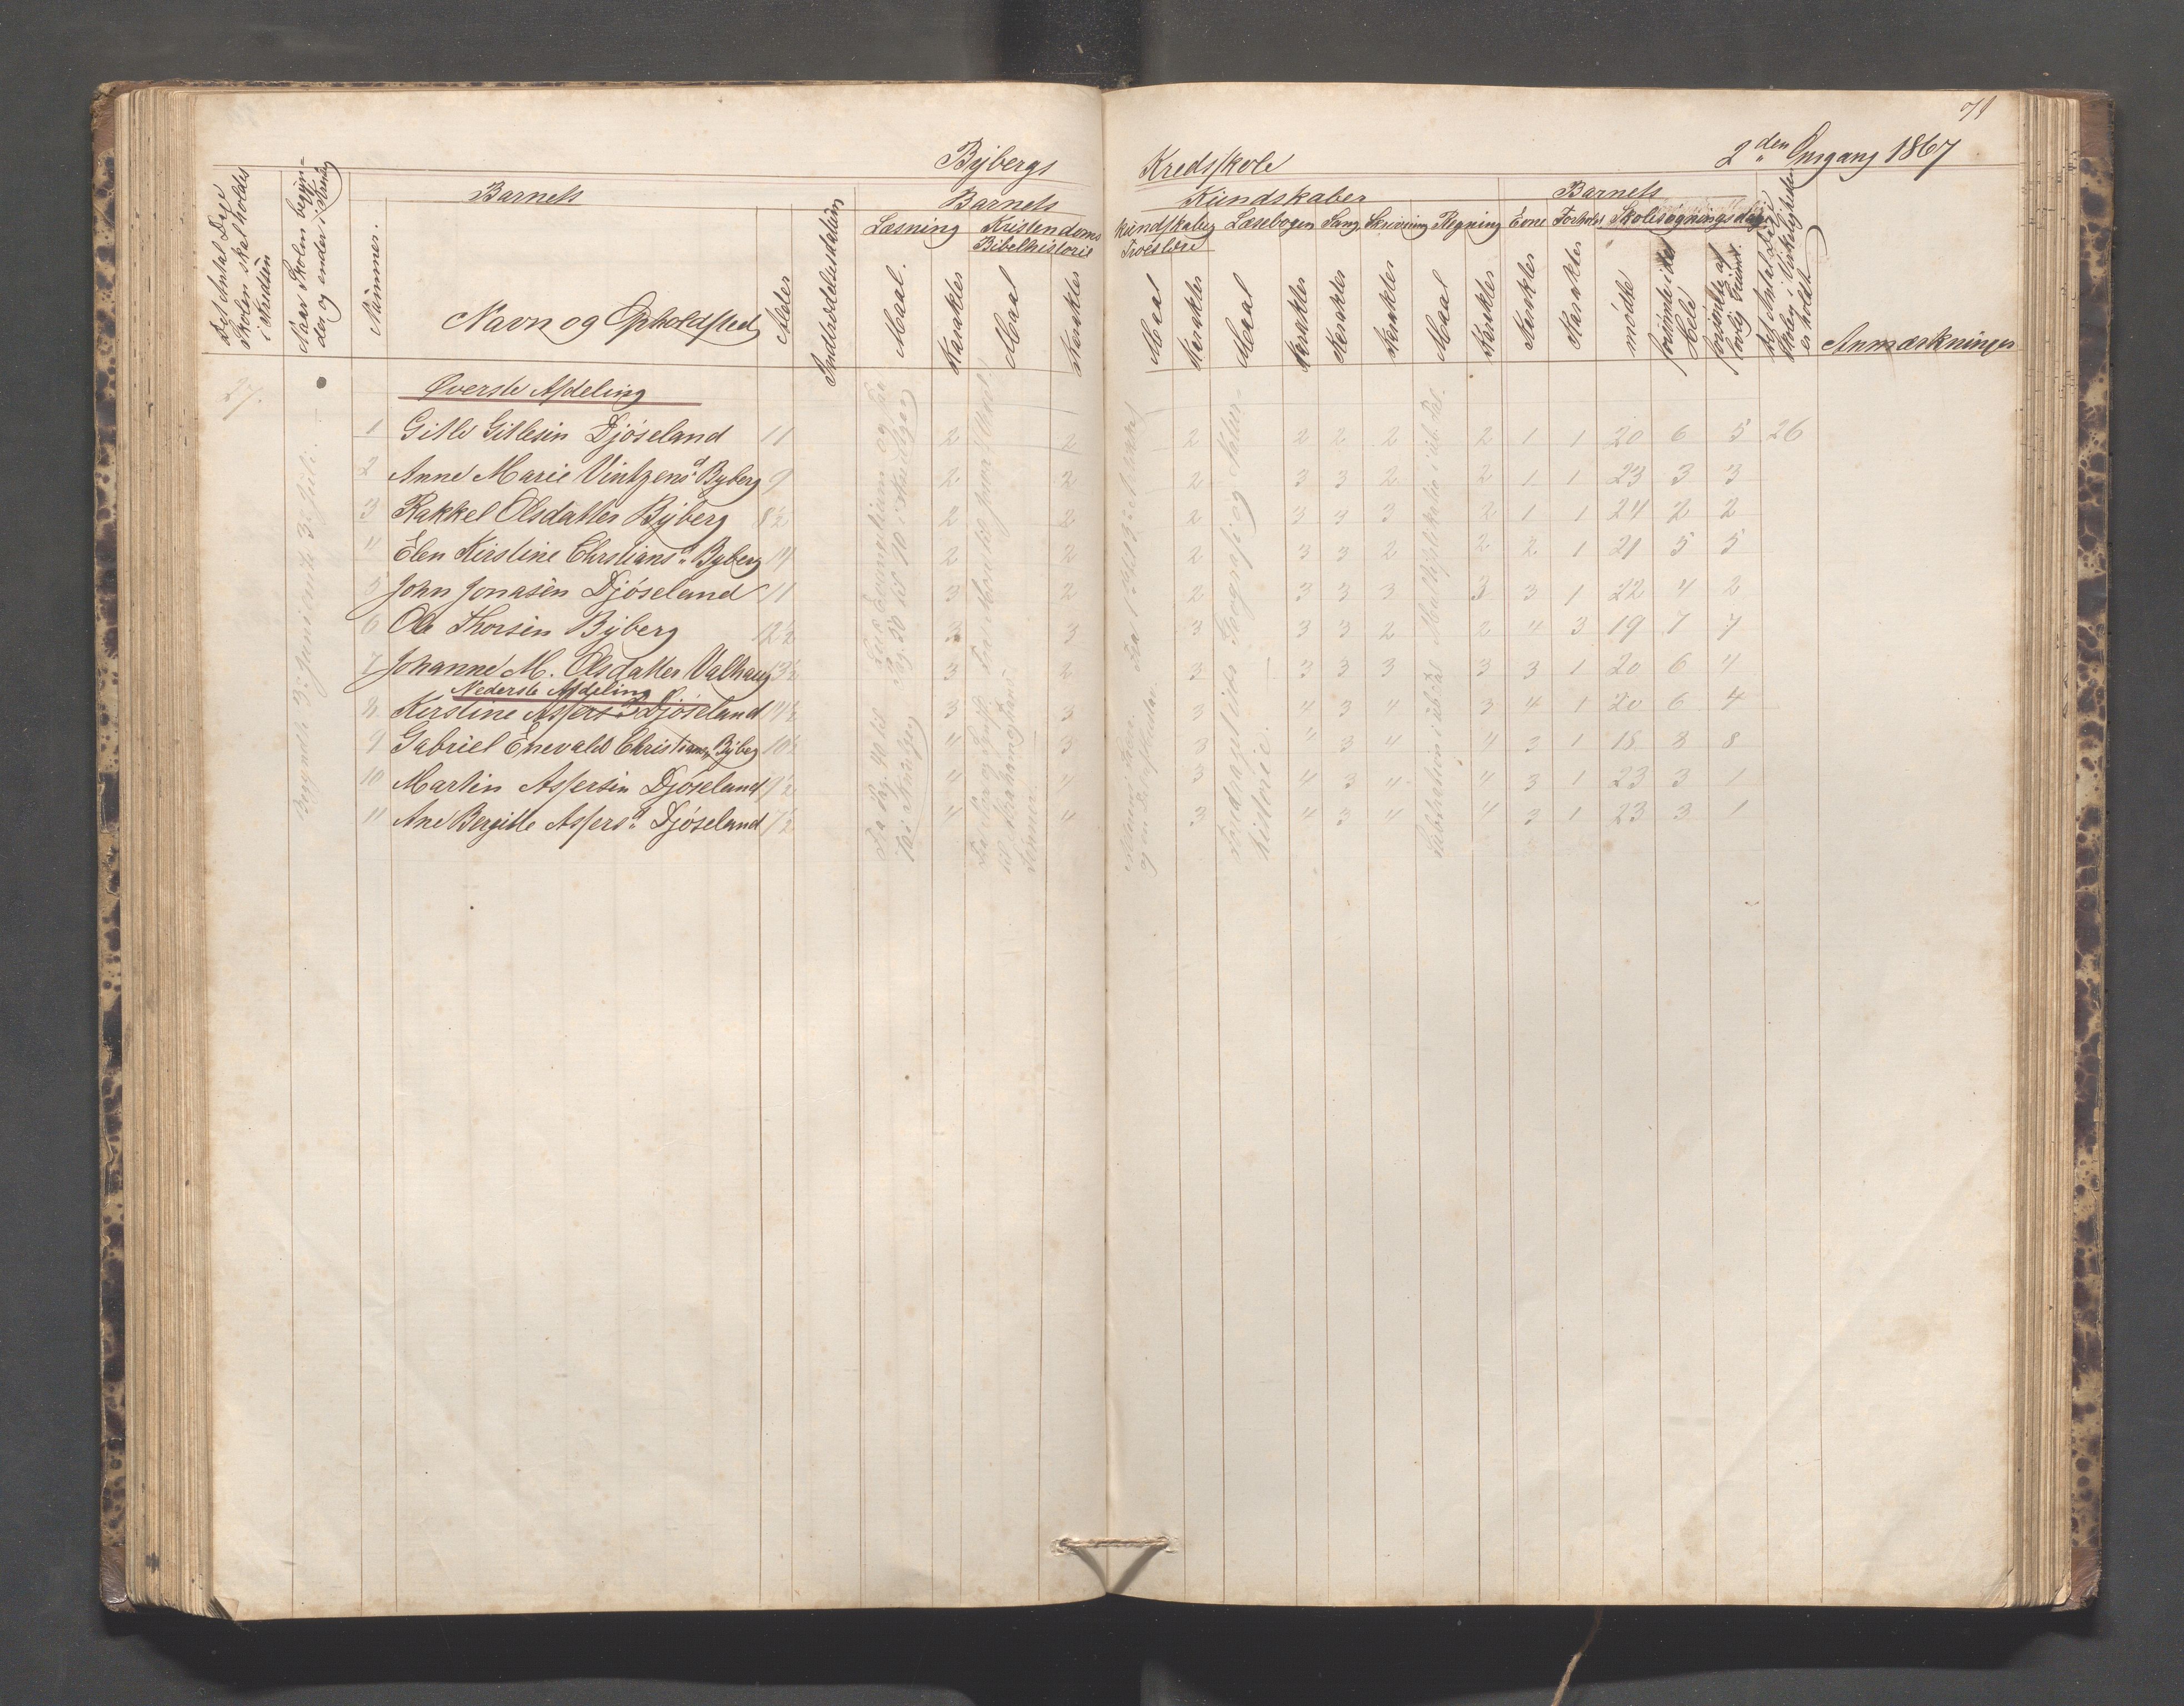 71
Bÿbergs Kredsskole 2den Omgang 1867
Det Antal Dage Skolen skal holdes i Kredsen
Naar Skolen begynder og ender i Kreds
Nummer.
Barnets
Navn og Opholdssted
Alder
Indtrædelsesdatum
Barnets Kundskaber
Læsning
Maal.
Karakter
Kristendomskundskaber
Bibelhistorie
Maal
Karakter
Troeslære
Maal
Karakter
Læsebogen
Maal
Karakter
Sang
Karakter
Skrivning
Karakter
Regning
Maal
Karakter
Barnets
Evne
Karakter
Forhold
Karakter
Skolesøgningsdage
mødte
forsømte i det Hele
forsømte af lovlig Grund.
Det Antal Dage Skolen i Virkeligheden er holdt
Anmærkninger
27.
Begyndte 3. Juni endte 3. Juli.
Øverste Afdeling
1 Gitle Gitlesen Djóseland 11 2 2 2 2 2 2 2 1 1 20 6 5 26
2 Anne Marie Vintzensd. Byberg 9 2 2 2 3 3 2 2 1 1 23 3 3
3 Rakkel Olsdatter Bÿberg 8½ 2 2 2 3 3 3 2 1 1 24 2 2
4 Elen Kirstine Chrstiansd. Byberg 14 2 2 2 3 3 2 2 2 1 21 5 5
5 John Jonasen Djóseland 11 3 2 2 3 3 3 3 3 1 22 4 2
6 Ole Thorsen Bÿberg 12½ 3 3 3 3 3 2 2 4 3 19 7 7
7 Johanne M. Olsdatter Valhaug 13½ 3 2 3 3 3 3 3 3 1 20 6 4
Nederste Afdeling
8 Kirstine Assersd. Djóseland 14½ 3 3 3 4 3 4 3 4 1 20 6 4
9 Gabriel Enevald Christiansen Bÿberg 10½ 4 3 3 4 3 4 4 3 1 18 8 8
10 Martin Assersen Djóseland 9½ 4 4 3 4 3 4 4 3 1 23 3 1
11 Ane Bergitte Assersd. Djóseland 7½ 4 4 3 4 3 4 4 3 1 23 3 1
Multiplikation i ub. Tal
Subtraktion i ub. Tal